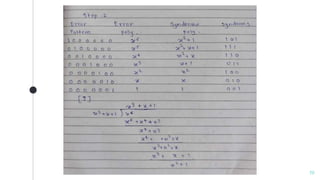 Step : 2
Error Error Syndrome Syndroms
Pattern poly. poly.
1 0 0 0 0 0 0 x⁶ x²+1 1 0 1
0 1 0 0 0 0 0 x⁵ x²+x+1 1 1 1
0 0 1 0 0 0 0 x⁴ x²+x 1 1 0
0 0 0 1 0 0 0 x³ x+1 0 1 1
0 0 0 0 1 0 0 x² x² 1 0 0
0 0 0 0 0 1 0 x x 0 1 0
0 0 0 0 0 0 1 1 1 0 0 1
x³+x+1
x³+x+1 ) x⁶
x⁶+x⁴+x³
x⁴+x³
x⁴+ +x²+x
x³+x²+x
x³+ x+1
x²+1